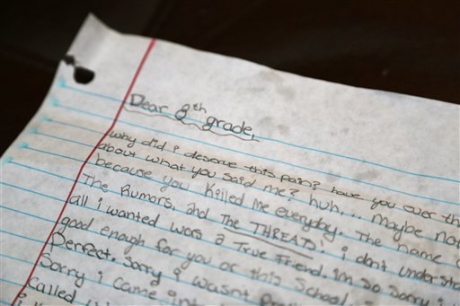 Dear 8th grade,
Why did i deserve this pain? have you ever th
about what you said me? huh... maybe not
because you killed me everyday. The name c
The Rumors, and The THREATS! i don't underst
all i wanted was a True friend. im so sorry i
good enough for you or this School
Perfect. Sorry i wasn't
Sorry i came int
Called